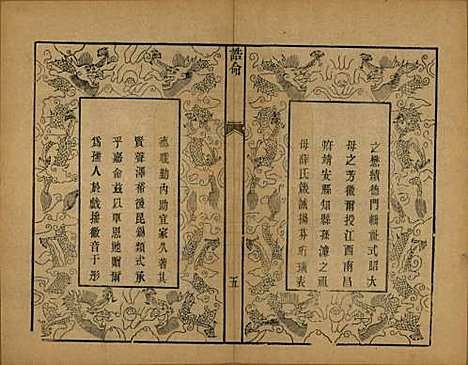 之懋績德門輯祉式昭大
母之芳徽爾投江西南昌
府靖安縣知縣孫濂之祖
母薛氏箴誡揚芬珩璜表
誥命
五
德職勤內助宜家久著其
賢聲澤裕後昆錫類式承
乎嘉命茲以覃恩貤贈爾
為孺人於戲播徽音于彤